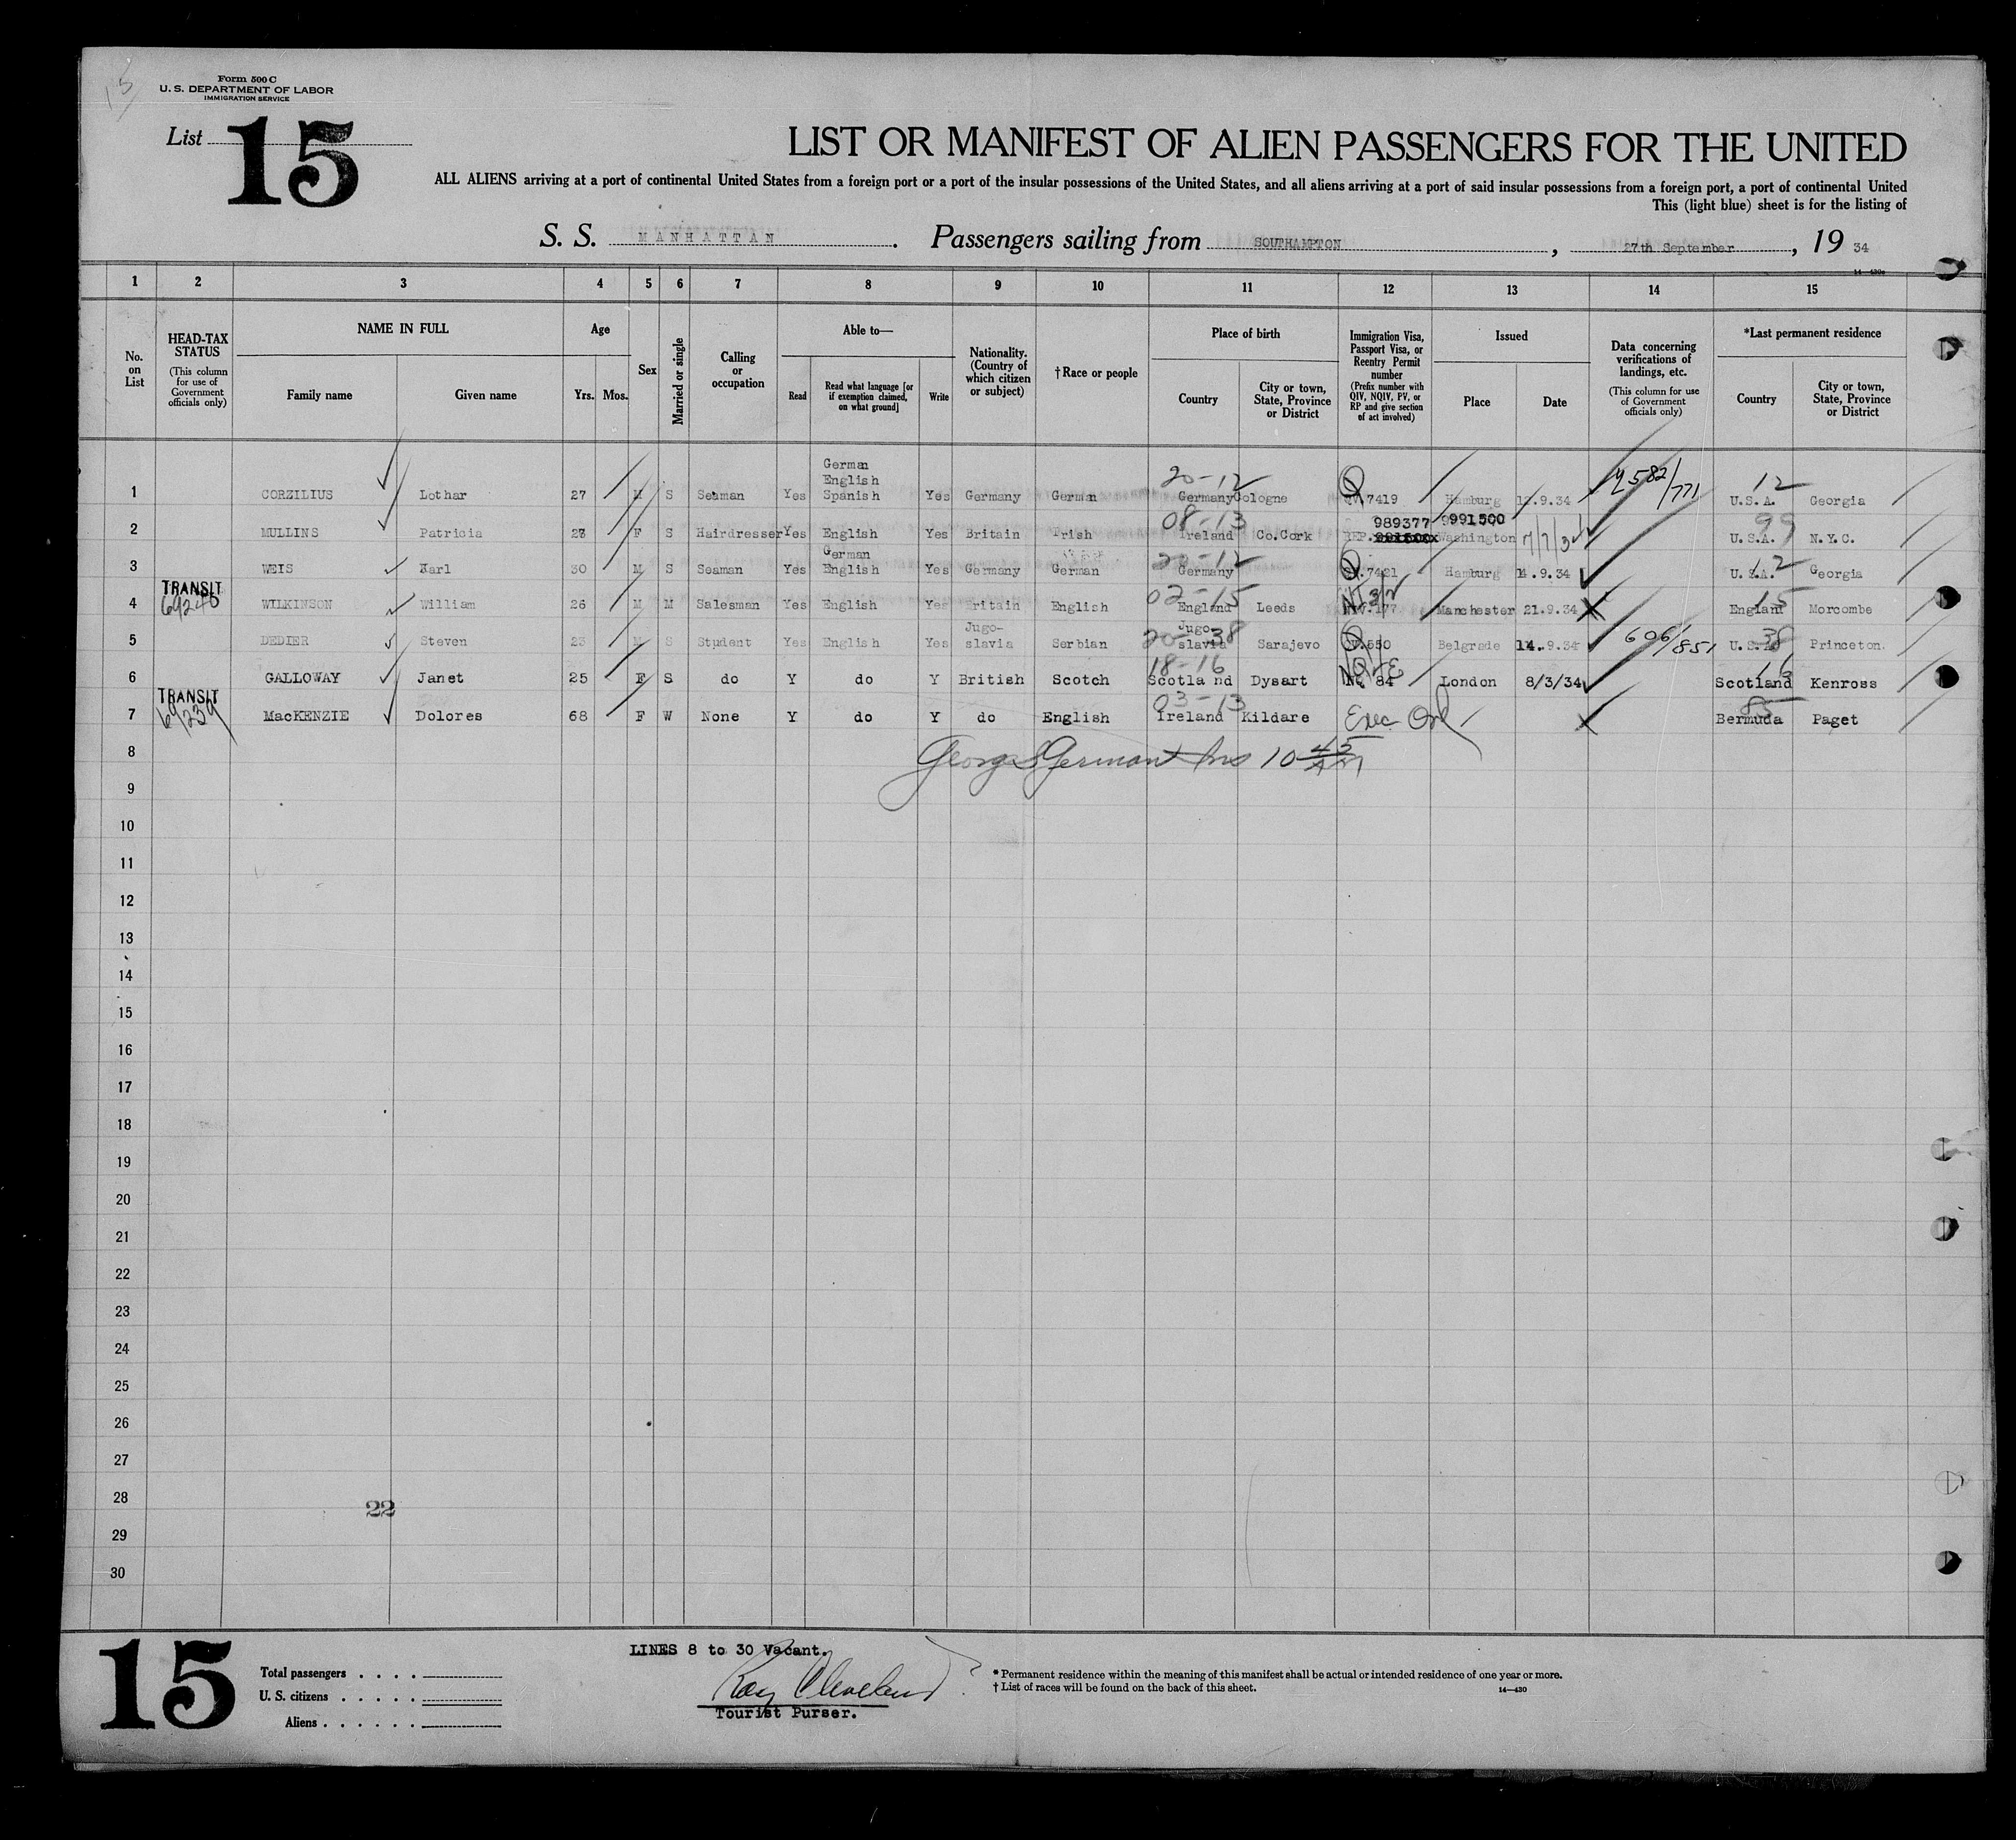 Form 500 C
U. S. DEPARTMENT OF LABOR
IMMIGRATION SERVICE
List 15
LIST OR MANIFEST OF ALIEN PASSENGERS FOR THE UNITED
ALL ALIENS arriving at a port of continental United States from a foreign port or a port of the insular possessions of the United States, and all aliens arriving at a port of said insular possessions from a foreign port, a port of continental United
This (light blue) sheet is for the listing of
S. S. MANHATTAN. Passengers sailing from SOUTHAMPTON, 27th September, 19 34
1 2 3 4 5 6 7 8 9 10 11 12 13 14 15
No. on List
HEAD-TAX STATUS (This column for use of Government officials only)
NAME IN FULL
Family name
Given name
Age
Yrs. Mos.
Sex
Married or single
Calling or occupation
Able to—
Read
Read what language [or if exemption claimed, on what ground]
Write
Nationality. (Country of which citizen or subject)
†Race or people
Place of birth
Country
City or town, State, Province or District
Immigration Visa, Passport Visa, or Reentry Permit number (Prefix number with QIV, NQIV, PV, or RP and give section of act involved)
Issued
Place
Date
Data concerning verifications of landings, etc. (This column for use of Government officials only)
*Last permanent residence
Country
City or town, State, Province or District
1 CORZILIUS Lothar 27 M S Seaman Yes German English Spanish Yes Germany German 20-12 Germany Cologne QV.7419 Hamburg .9.34 U.S.A. 12 Georgia
2 MULLINS Patricia F S Hairdresser Yes English Yes Britain Irish 08-13 Ireland Co.Cork REP. 989377 991500 Washington 7/7/34 U.S.A. 99 N.Y.C.
3 WEIS Karl 30 M S Seaman Yes German English Yes Germany German 20-12 Germany QV.7421 Hamburg 14.9.34 U.S.A. 12 Georgia
TRANSIT 69240
4 WILKINSON William 26 M M Salesman Yes English Yes Britain English 02-15 England Leeds 177 Manchester 21.9.34 England 15 Morcombe
5 DEDIER Steven 23 M S Student Yes English Yes Jugo-slavia Serbian 20-38 Jugo-slavia Sarajevo QV.550 Belgrade 14.9.34 606/851 U.S.A. 38 Princeton.
6 GALLOWAY Janet 25 F S do Y do Y British Scotch 18-16 Scotland Dysart 84 London 8/3/34 Scotland 16 Kenross
TRANSIT 69239
7 MacKENZIE Dolores 68 F W None Y do Y do English 03-13 Ireland Kildare Exec Ord Bermuda 85 Paget
8
9
10
11
12
13
14
15
16
17
18
19
20
21
22
23
24
25
26
27
28
22
29
30
15
LINES 8 to 30 Vacant.
Total passengers
U. S. citizens
Aliens
Ray Cleveland
Tourist Purser.
* Permanent residence within the meaning of this manifest shall be actual or intended residence of one year or more.
† List of races will be found on the back of this sheet.
14—430